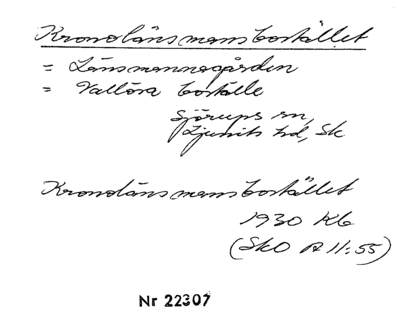 Kronolänsmansbostället
= Länsmannagården
= Vallösa boställe
Sjörups sn,
Ljunits hd, Sk
Kronolänsmansbostället
1930 Kb
(SkO A 11:55)
Nr 22307